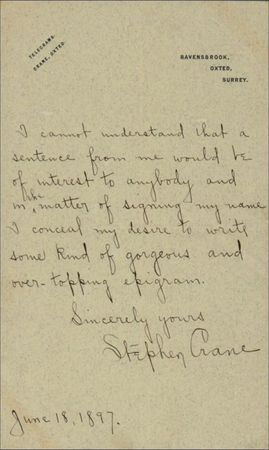 TELEGRAMS.
CRANE, OXTED.
RAVENSBROOK,
OXTED,
SURREY.
I cannot understand that a
sentence from me would be
of interest to anybody and
in the matter of signing my name
I conceal my desire to write
some kind of gorgeous and
over-topping epigram.
Sincerely yours
Stephen Crane
June 18, 1897.